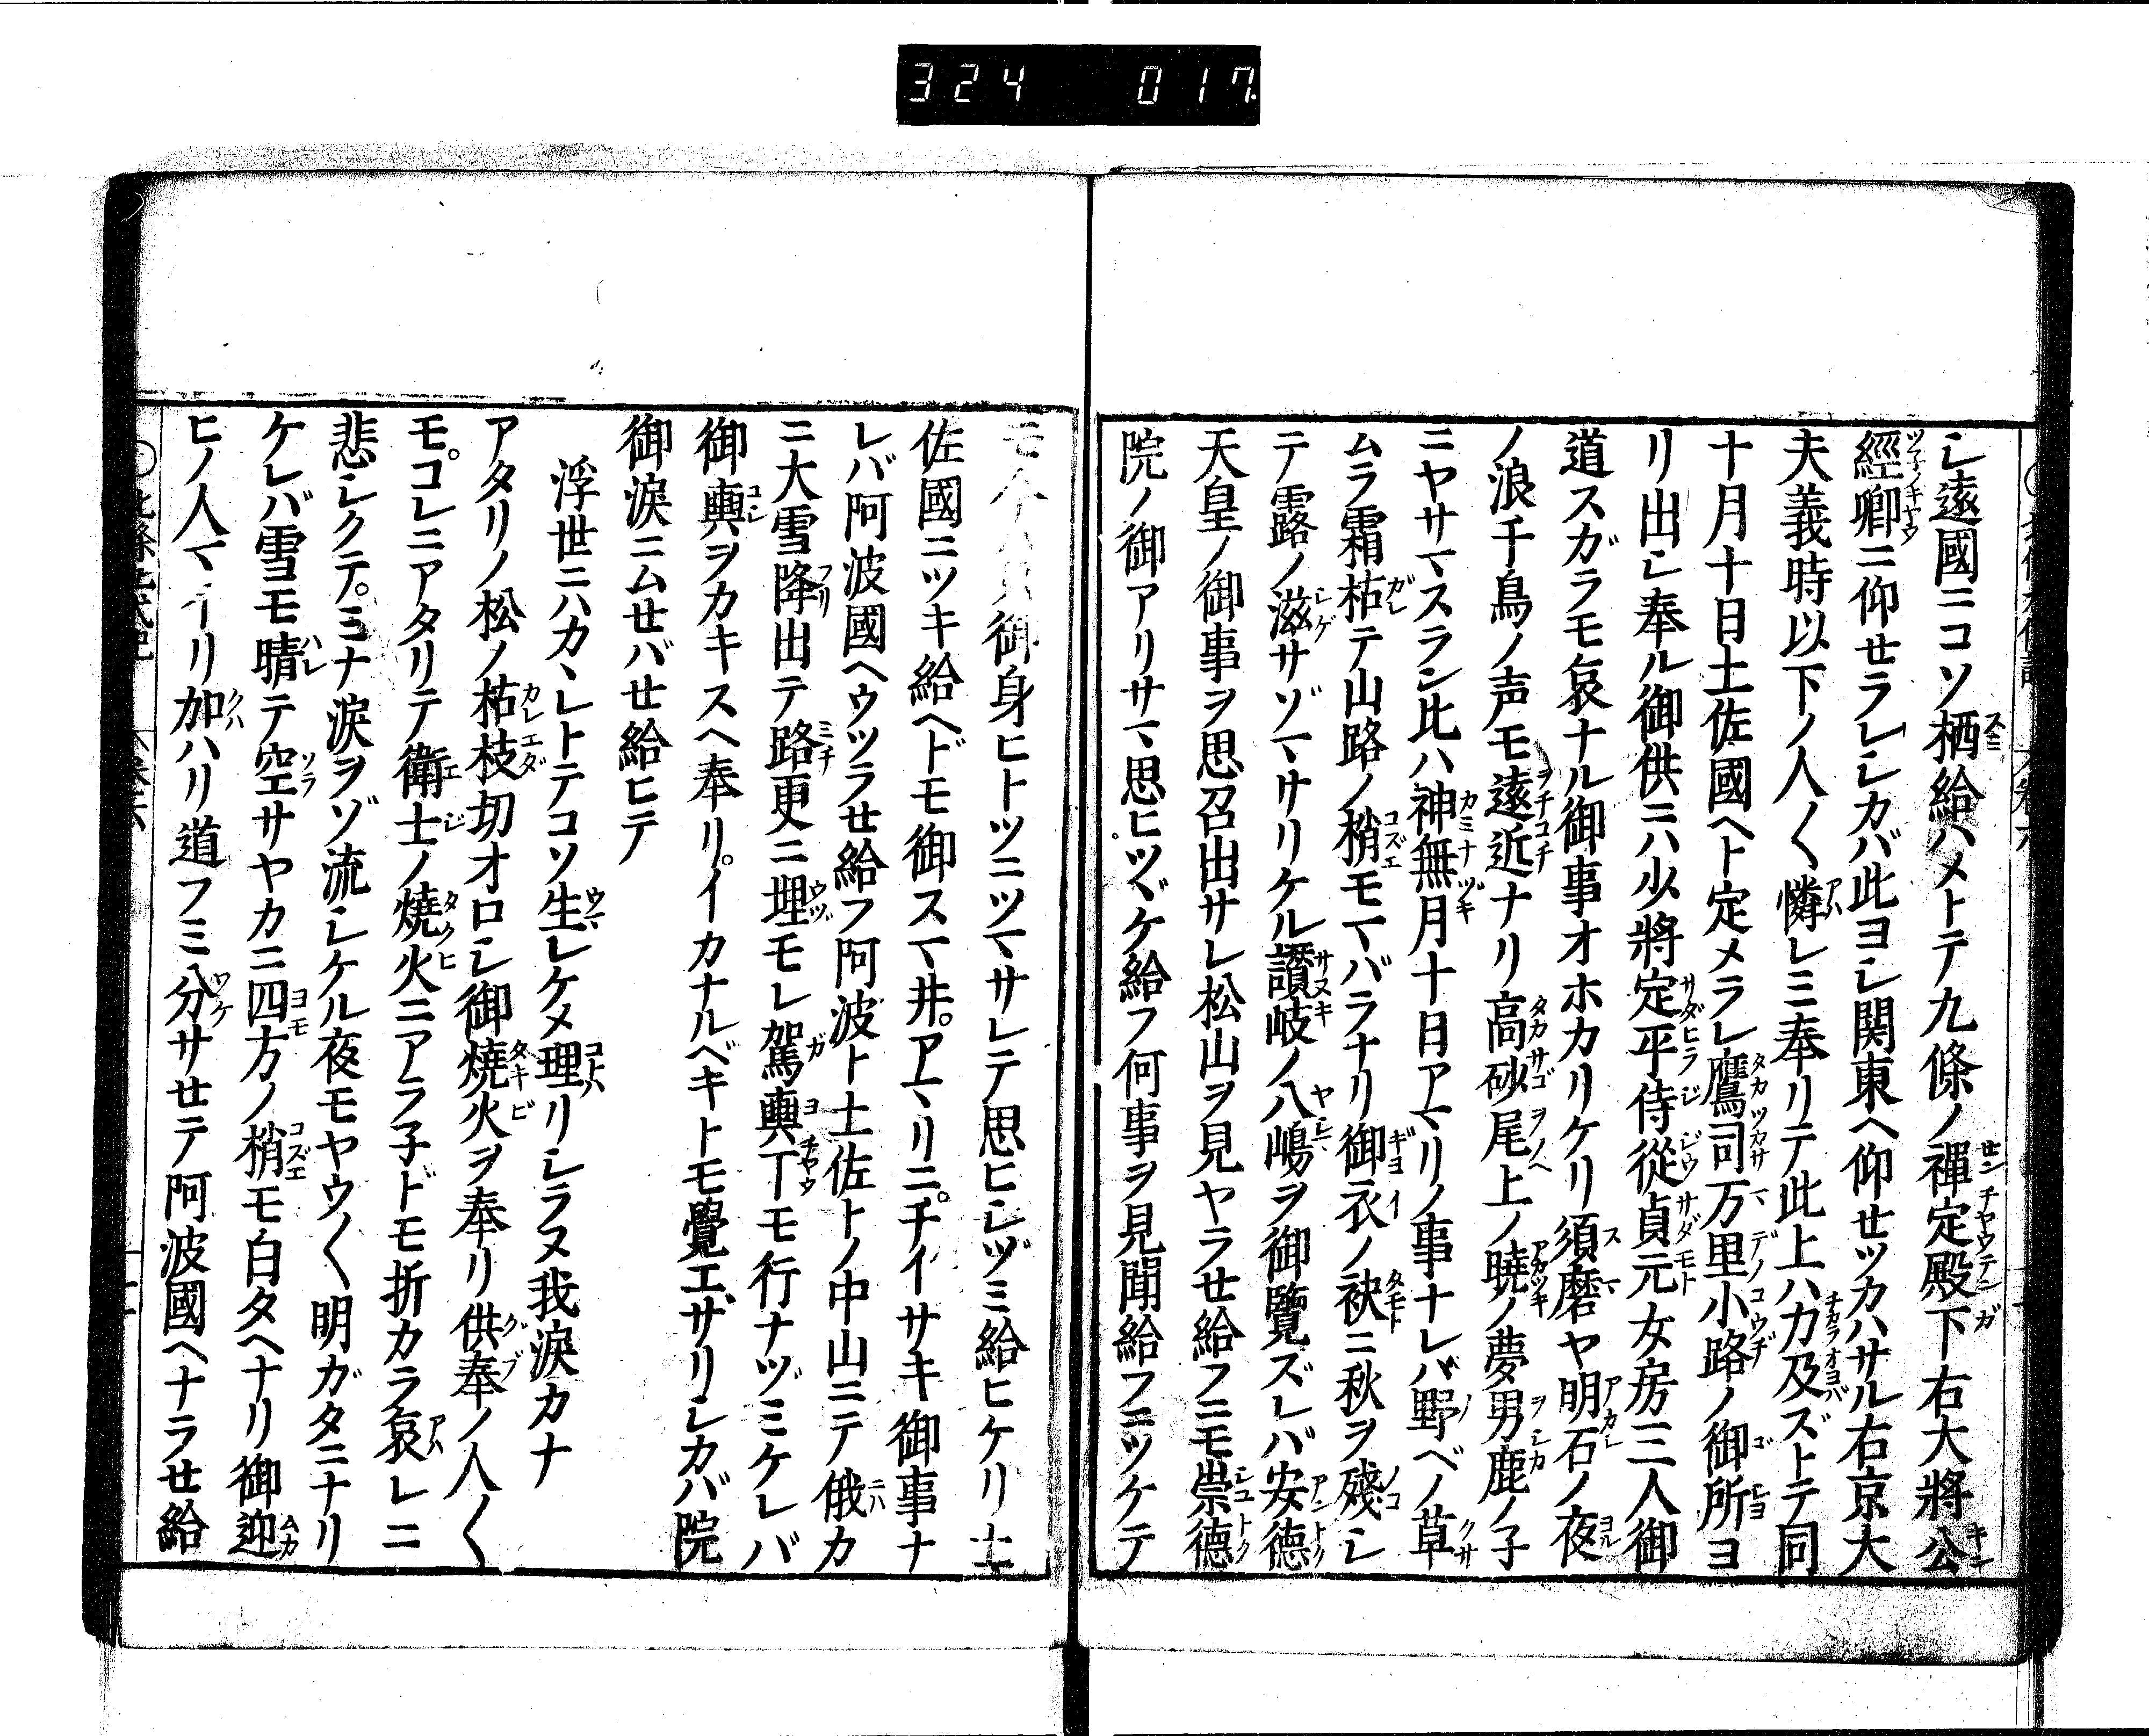 324 017
シ遠國ニコソ栖給ハメトテ九條ノ禪定殿下右大將公
經卿ニ仰せラレシカバ此ヨシ関東ヘ仰せツカハサル右京大
夫義時以下ノ人〱憐レミ奉リテ此上ハ力及ズトテ同
十月十日土佐國ヘト定メラレ鷹司万里小路ノ御所ヨ
リ出シ奉ル御供ニハ少將定平侍從貞元女房三人御
道スガラモ哀ナル御事オホカリケリ須磨ヤ明石ノ夜
ノ浪千鳥ノ声モ遠近ナリ高砂尾上ノ曉ノ夢男鹿ノ子
ニヤサマスラン比ハ神無月十日アマリノ事ナレバ野ベノ草
ムラ霜枯テ山路ノ梢モマバラナリ御衣ノ袂ニ秋ヲ殘シ
テ露ノ滋サゾマサリケル讚岐ノ八嶋ヲ御覽ズレバ安德
天皇ノ御事ヲ思召出サレ松山ヲ見ヤラせ給フニモ崇德
院ノ御アリサマ思ヒツヾケ給フ何事ヲ見聞給フニツケテ
御身ヒトツニツマサレテ思ヒシヅミ給ヒケリ土
佐國ニツキ給ヘドモ御スマ井。アマリニ。チイサキ御事ナ
レバ阿波國ヘウツラせ給フ阿波ト土佐トノ中山ニテ俄カ
ニ大雪降出テ路更ニ埋モレ駕輿丁モ行ナヅミケレバ
御輿ヲカキスヘ奉リ。イカナルベキトモ覺エザリシカバ院
御淚ニムせバせ給ヒテ
浮世ニハカヽレトテコソ生レケメ理リシラヌ我淚カナ
アタリノ松ノ枯枝切オロシ御燒火ヲ奉リ供奉ノ人〱
モ。コレニアタリテ衛士ノ燒火ニアラ子ドモ折カラ哀レニ
悲シクテ。ミナ淚ヲゾ流シケル夜モヤウ〱明ガタニナリ
ケレバ雪モ晴テ空サヤカニ四方ノ梢モ白タヘナリ御迎
ヒノ人マイリ加ハリ道フミ分サせテ阿波國ヘナラせ給